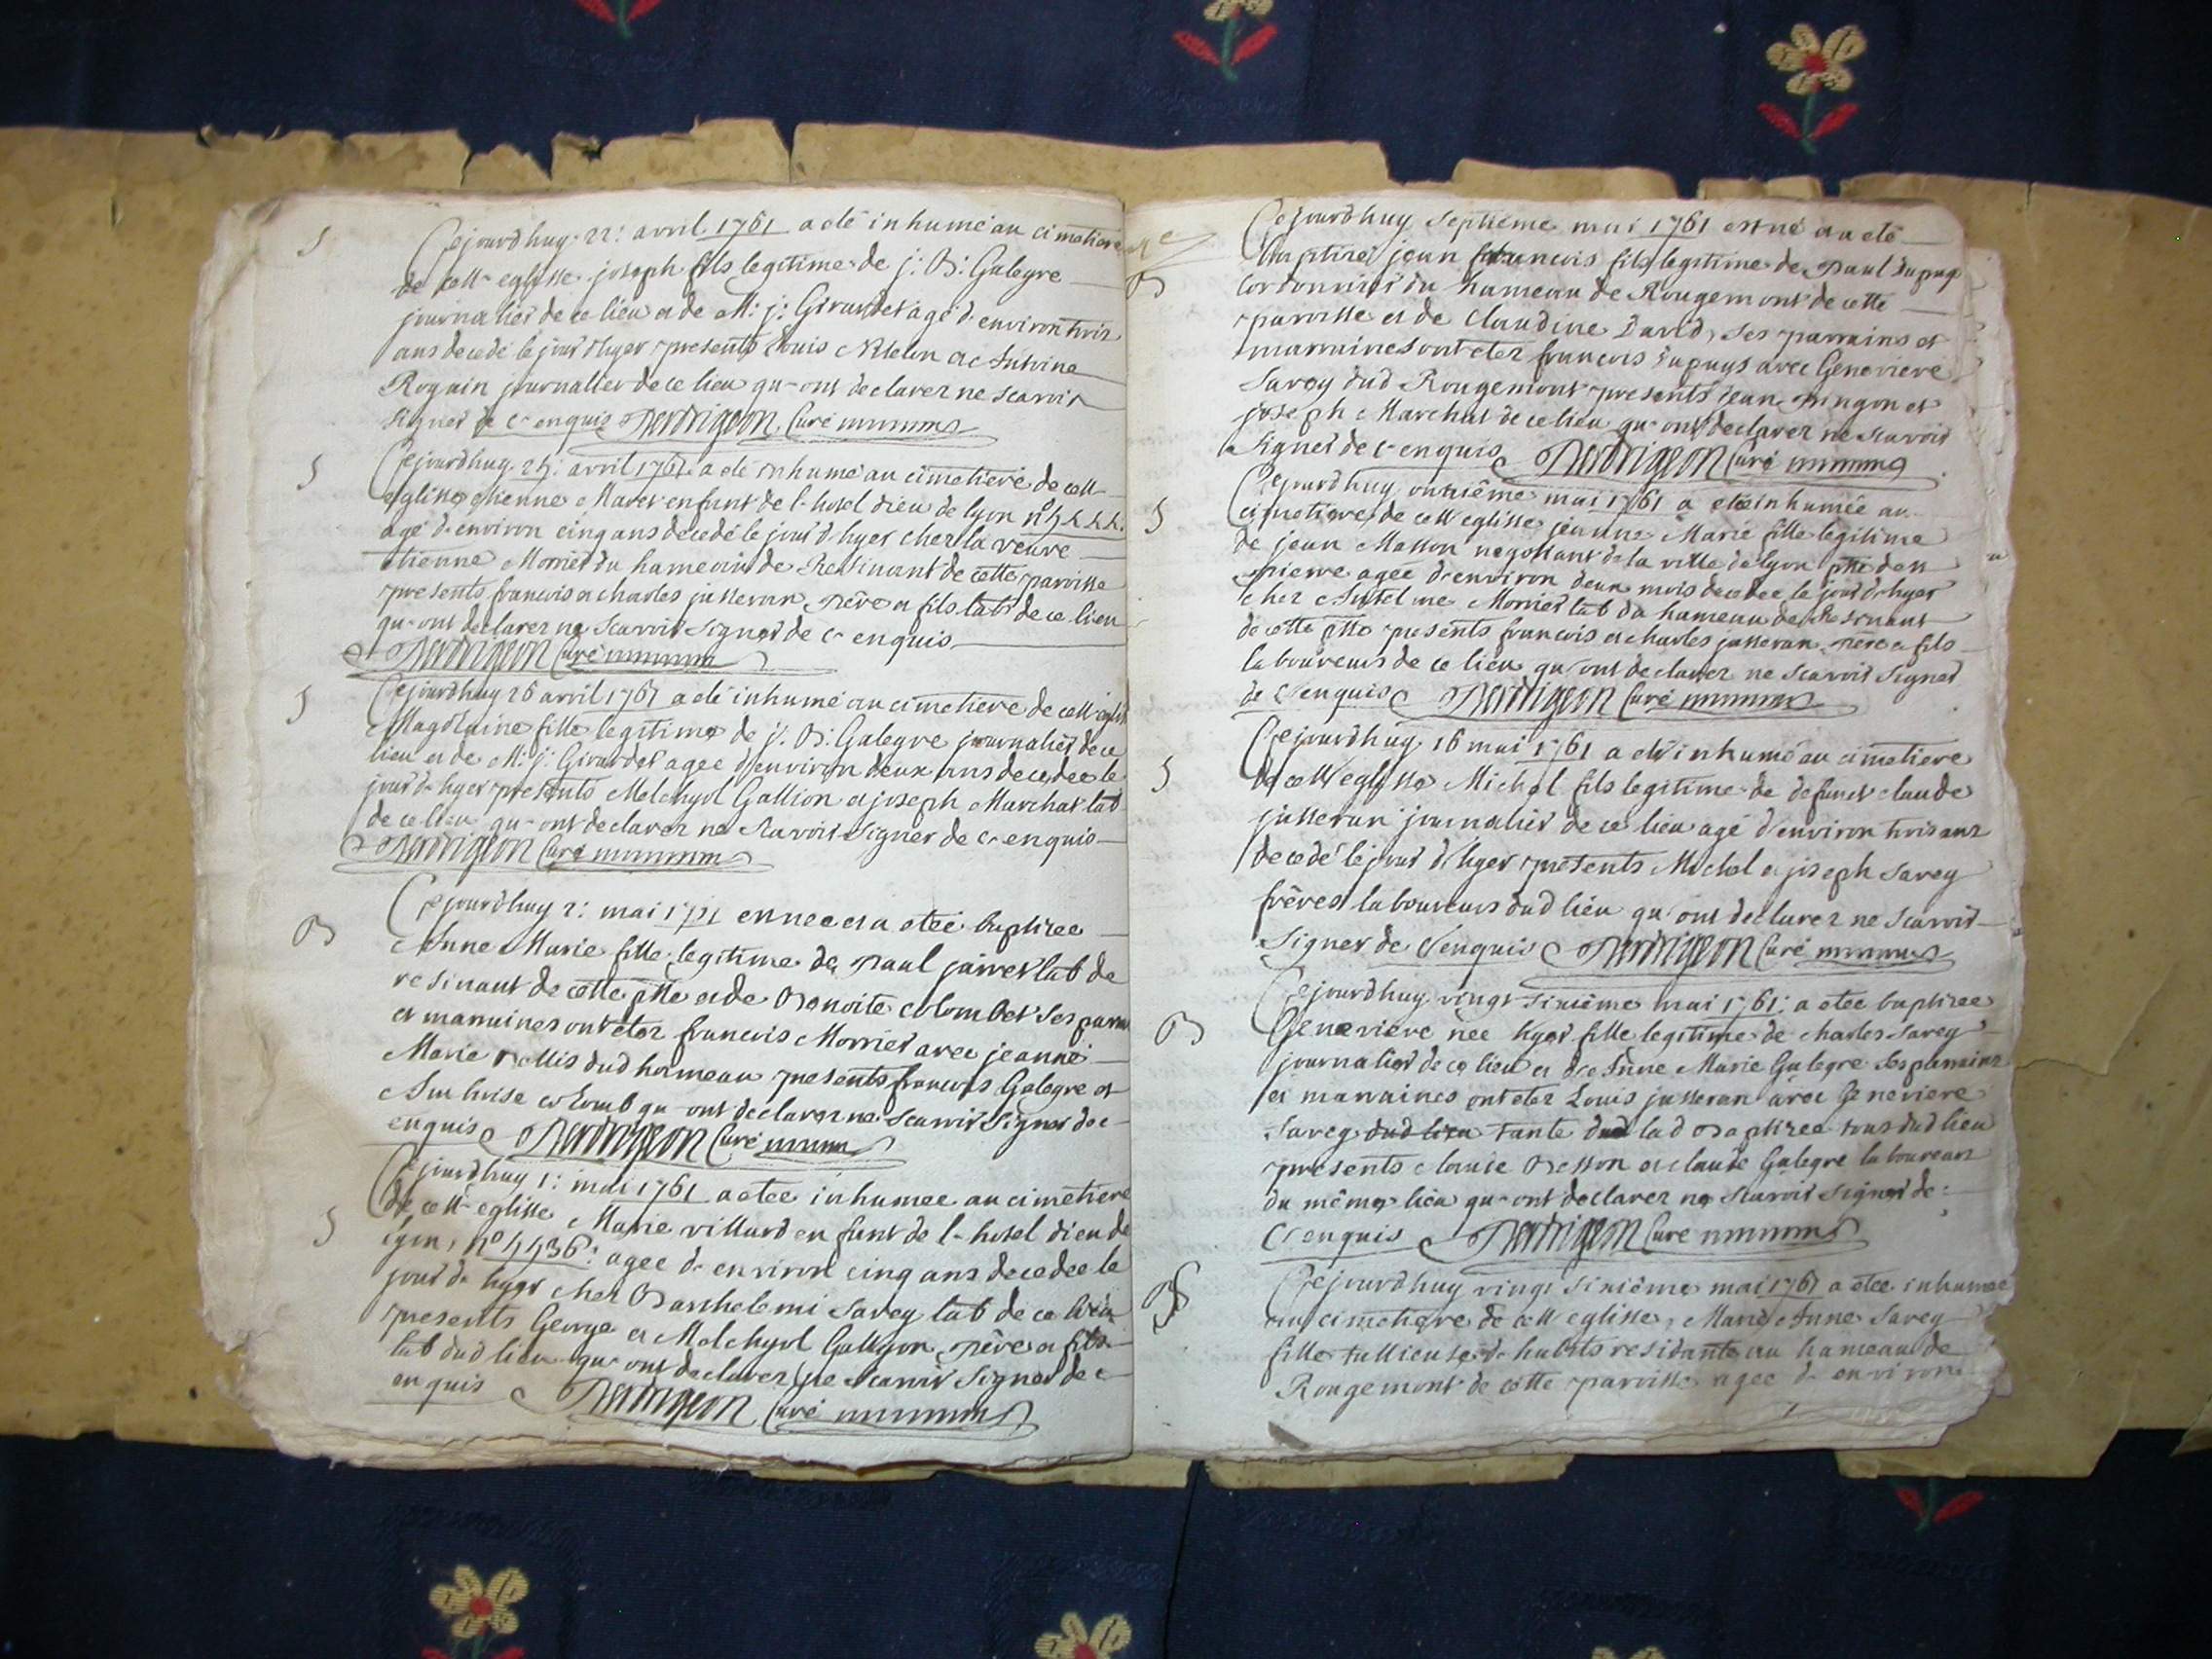 S
Cejourdhuy 22: avril 1761 a eté inhumé au cimetiere
de cett eglisse joseph fils legitime de j: B: Galegre
journalier de ce lieu et de M: j: Girardet agé d environ trois
ans decedé le jour d'hyer presents Louis et Antoine
Roguin journalier de ce lieu qu- ont declarer ne scavoir
signer de c- enquis Curé
S
Cejourdhuy 25: avril 1761 a eté inhumé au cimetiere de cett
eglisse etienne Maret enfant de l- hotel dieu de lyon n°
agé d- environ cinq ans decedé le jour d- hyer chez la veuve
etienne Morriet du hameau de Resinant de cette paroisse
presents francois et charles jusseran pêre et fils lab de ce lieu
qu- ont declarer ne scavoir signer de c- enquis
Curé
S
Cejourdhuy 26 avril 1761 a eté inhumé au cimetiere de cett eglis
Magdelaine fille legitime de j: B: Galegre journalier de ce
lieu et de M: j: Girardet agee d'environ deux ans decedee le
jour d- hyer presents Melchyol Gallion et joseph Marchat lab
de ce lieu qu- ont declarer ne scavoir signer de c- enquis
Curé
B
Cejourdhuy 2: mai 1761 en nee et a etee baptizee
Anne Marie fille legitime de paul jairet lab de
resinant de cette psse et de Benoite colombet ses parrn
et marraines ont eter francois Morriet avec jeanne
Marie dud hameau presents francois Galegre et
Ambroise colomb qu- ont declarer ne scavoir signer de c-
enquis Curé
S
Cejourdhuy 1: mai 1761 a etee inhumee au cimetiere
de cett- eglisse Marie villard enfant de l- hotel dieu de
lyon, n° 4436: agee d- environ cinq ans decedee le
jour d- hyer chez Barthelemi Savey lab de ce lieu
presents George et Melchyol Gallyon pêre et fils
lab dud lieu qu- ont declarer ne scavoir signer de c-
enquis Curé
B
Cejourdhuy septieme mai 1761 est né et a eté
baptizé jean francois fils legitime de paul dupuy
cordonnier du hameau de Rougemont de cette
paroisse et de Claudine David, ses parrains et
marraines ont eter francois dupuys avec Genevieve
Savey dud Rougemont presents jean et
joseph Marchat de ce lieu qu- ont declarer ne scavoir
signer de c- enquis Curé
S
Cejourdhuy onzième mai 1761 a eté inhumée au
cimetiere de cett eglisse jeanne Marie fille legitime
de jean Masson negossiant de la ville de lyon psse de st
pierre agée d'environ deux mois decedee le jour d- hyer
chez Morriet lab du hameau de Resinant
de cette psse presents francois et charles jusseran pêre et fils
laboureurs de ce lieu qu'ont declarer ne scavoir signer
de c- enquis Curé
S
Cejourdhuy 16 mai 1761 a eté inhumé au cimetiere
de cett eglisse Michel fils legitime de defunct claude
jusseran journalier de ce lieu agé d'environ trois ans
decedé le jour d'hyer presents Michel et joseph Savey
frères laboureurs dud lieu qu'ont declarer ne scavoir
signer de c- enquis Curé
B
Cejourdhuy vingt sixième mai 1761: a etee baptizee
Genevieve nee hyer fille legitime de charles Savey
journalier de ce lieu et de Anne Marie Galegre ses parrains
et marraines ont eter Louis jusseran avec Genevieve
Savey dud lieu tante dud lad Baptizee tous dud lieu
presents claude Besson et claude Galegre laboureurs
du même lieu qu- ont declarer ne scavoir signer de:
c- enquis Curé
S
Cejourdhuy vingt sixième mai 1761 a etee inhumee
au cimetiere de cett eglisse, Marie Anne Savey
fille tallieuse d- habits residante au hameau de
Rougemont de cette paroisse agee d- environ